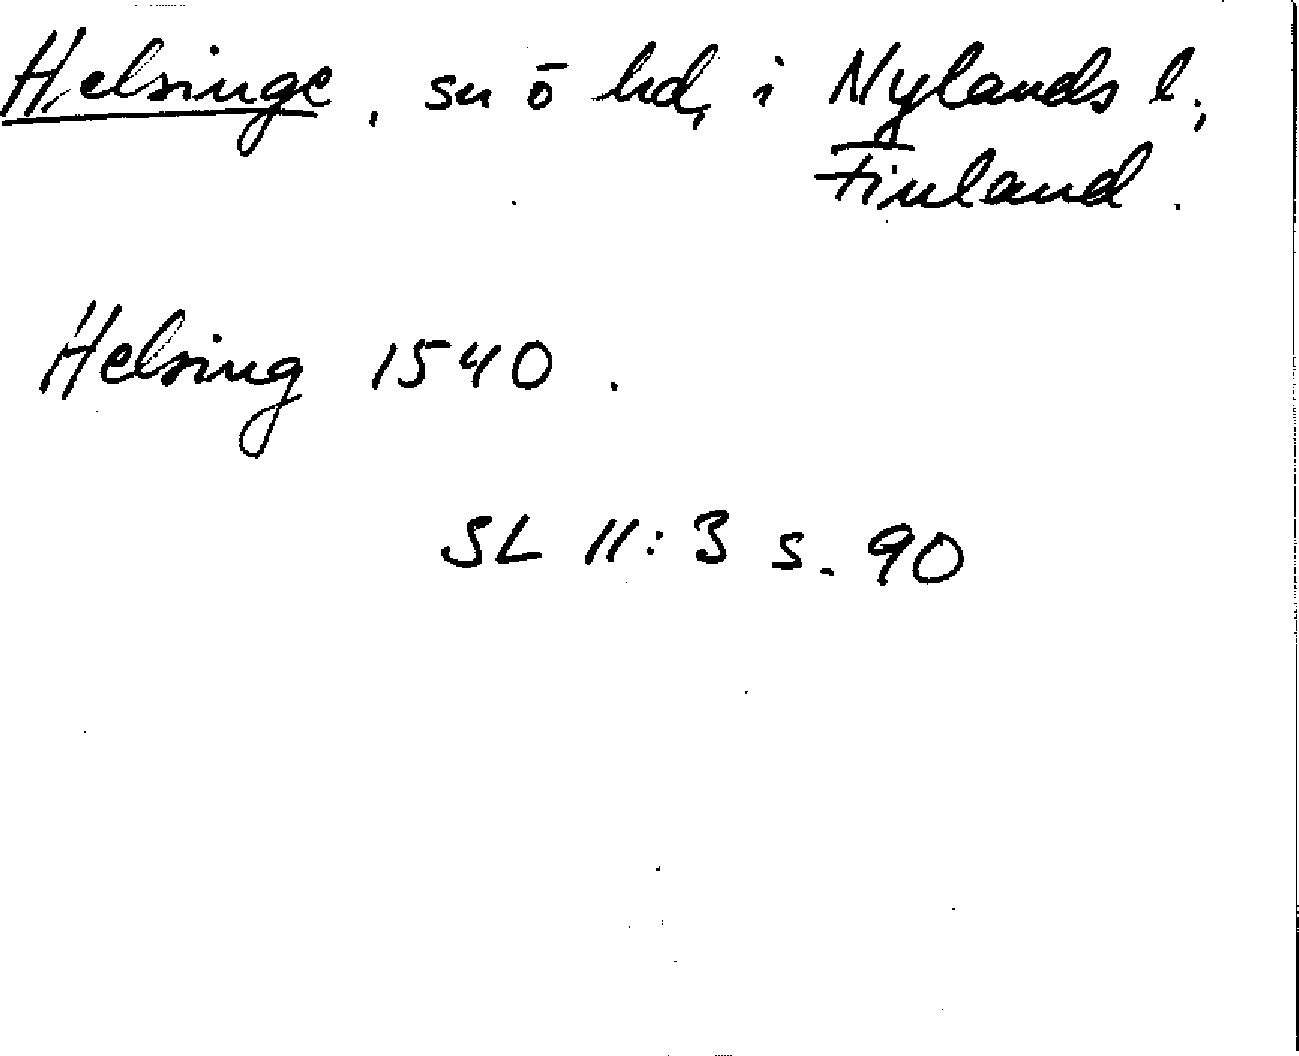 Helsinge, sn ō hd, i Nylands l.,
Finland.
Helsing 1540.
SL 11:3 s. 90